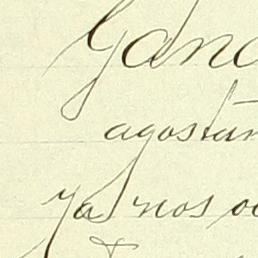 Gana
agostun
ya nos oc